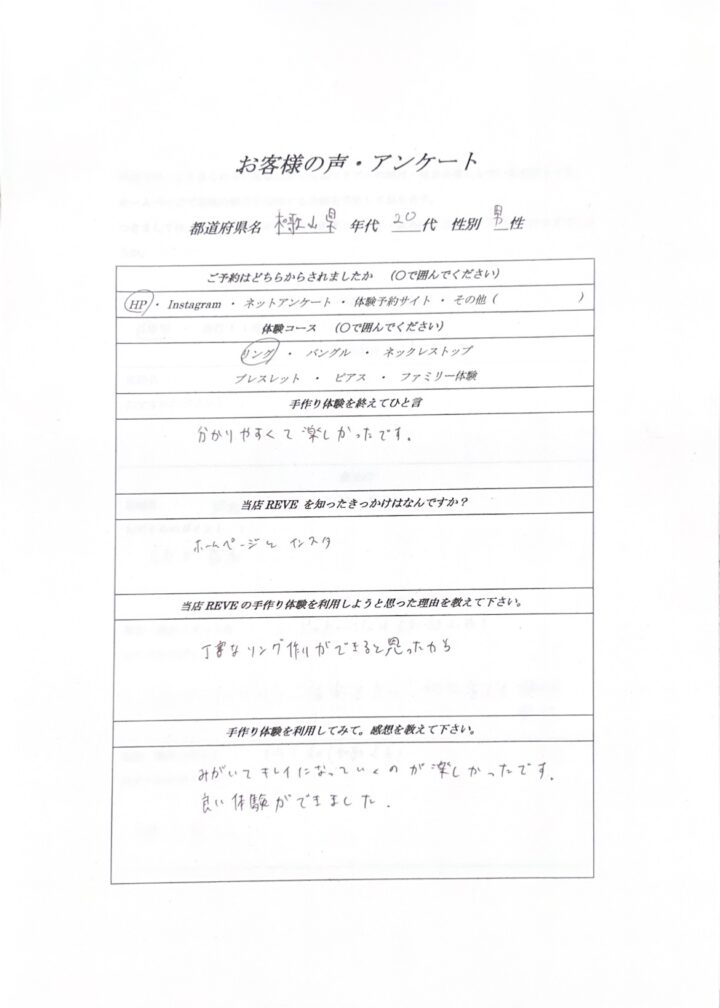 お客様の声・アンケート
都道府県名 和歌山県 年代 20 代 性別 男 性
ご予約はどちらからされましたか (〇で囲んでください)
HP ・ Instagram ・ ネットアンケート ・ 体験予約サイト ・ その他 ( )
体験コース (〇で囲んでください)
リング ・ バングル ・ ネックレストップ
ブレスレット ・ ピアス ・ ファミリー体験
手作り体験を終えてひと言
分かりやすくて楽しかったです。
当店REVE を知ったきっかけはなんですか?
ホームページと インスタ
当店REVEの手作り体験を利用しようと思った理由を教えて下さい。
丁寧なリング作りができると思ったから
手作り体験を利用してみて。感想を教えて下さい。
みがいてキレイになっていくのが楽しかったです。
良い体験ができました.